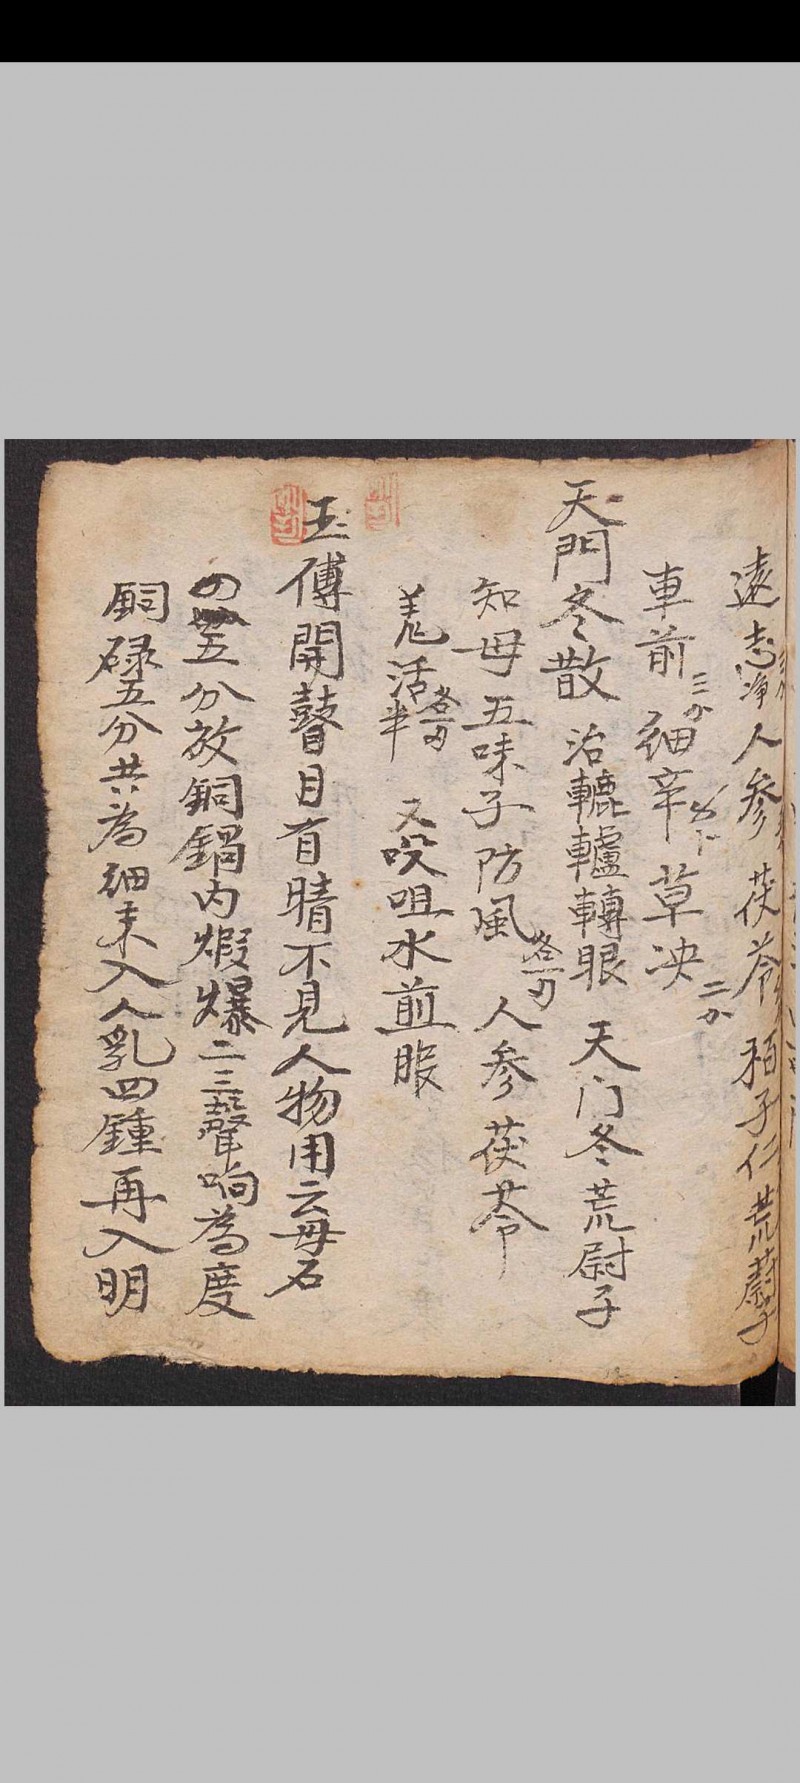 遠志净人參茯苓栢子仁荒蔚子
車前三分細辛草决二分
天門冬散治轆轤轉眼天门冬荒尉子
知母五味子防風各一刃人參茯苓
羌活各一刃半又㕮咀水煎服
玉傅開瞽目有睛不見人物用云母石
五分放銅鍋内煆爆二三聲响為度
銅碌五分共為細末入人乳四鍾再入明